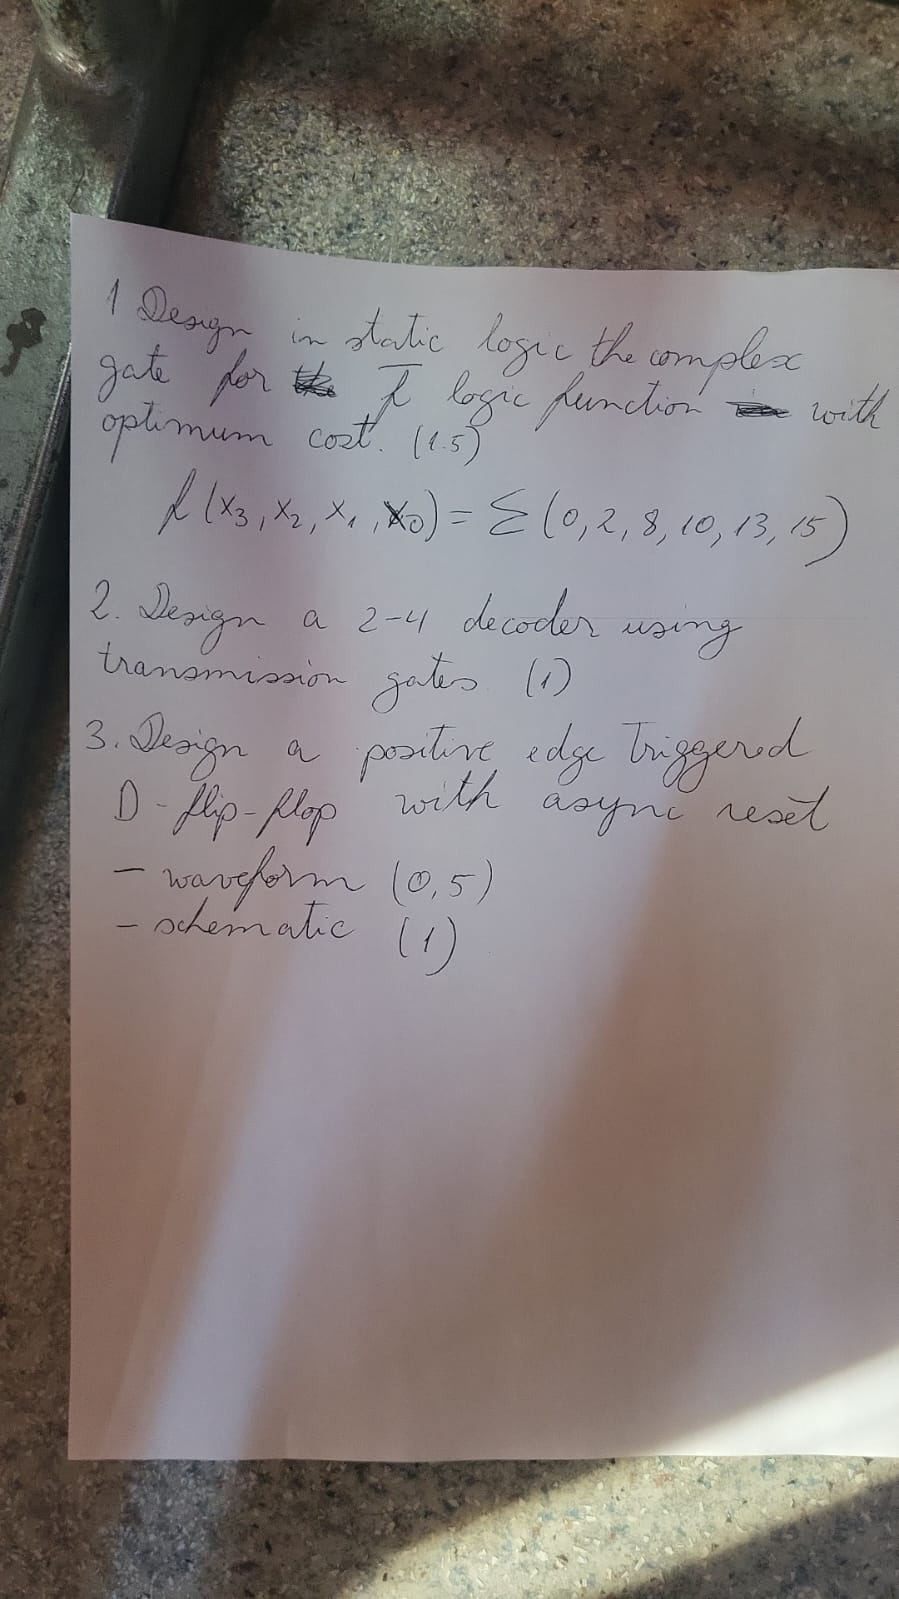 1 Design in static logic the complex
gate for f̅ logic function with
optimum cost. (1.5)
f(x₃, x₂, x₁, x₀) = Σ(0, 2, 8, 10, 13, 15)
2. Design a 2-4 decoder using
transmission gates (1)
3. Design a positive edge triggered
D-flip-flop with async reset
- waveform (0,5)
- schematic (1)